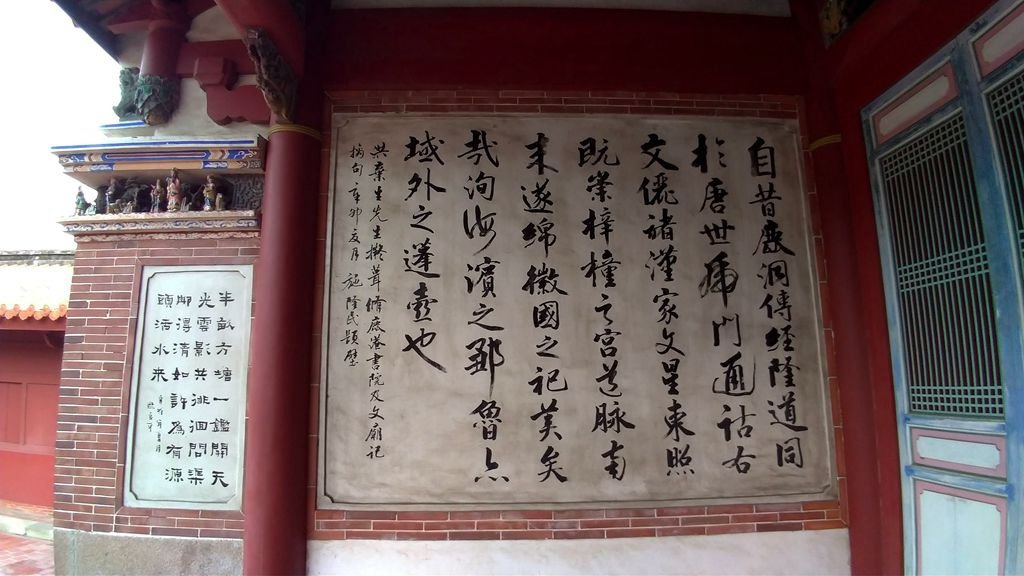 自昔鹿洞傳經隆道同
於唐世虎門通詁右
文儷諸漢家文星東照
既崇梓橦之宮道脉南
來遂綿徽國之祀美矣
哉洵海濱之鄒魯亦
域外之蓬壺也
洪棄生先生撰葺脩鹿港書院及文廟記
摘句 辛卯夏月 施隆民題壁
半畝方塘一鑑開天
光雲景共徘徊問渠
那得清如許為有源
頭活水來